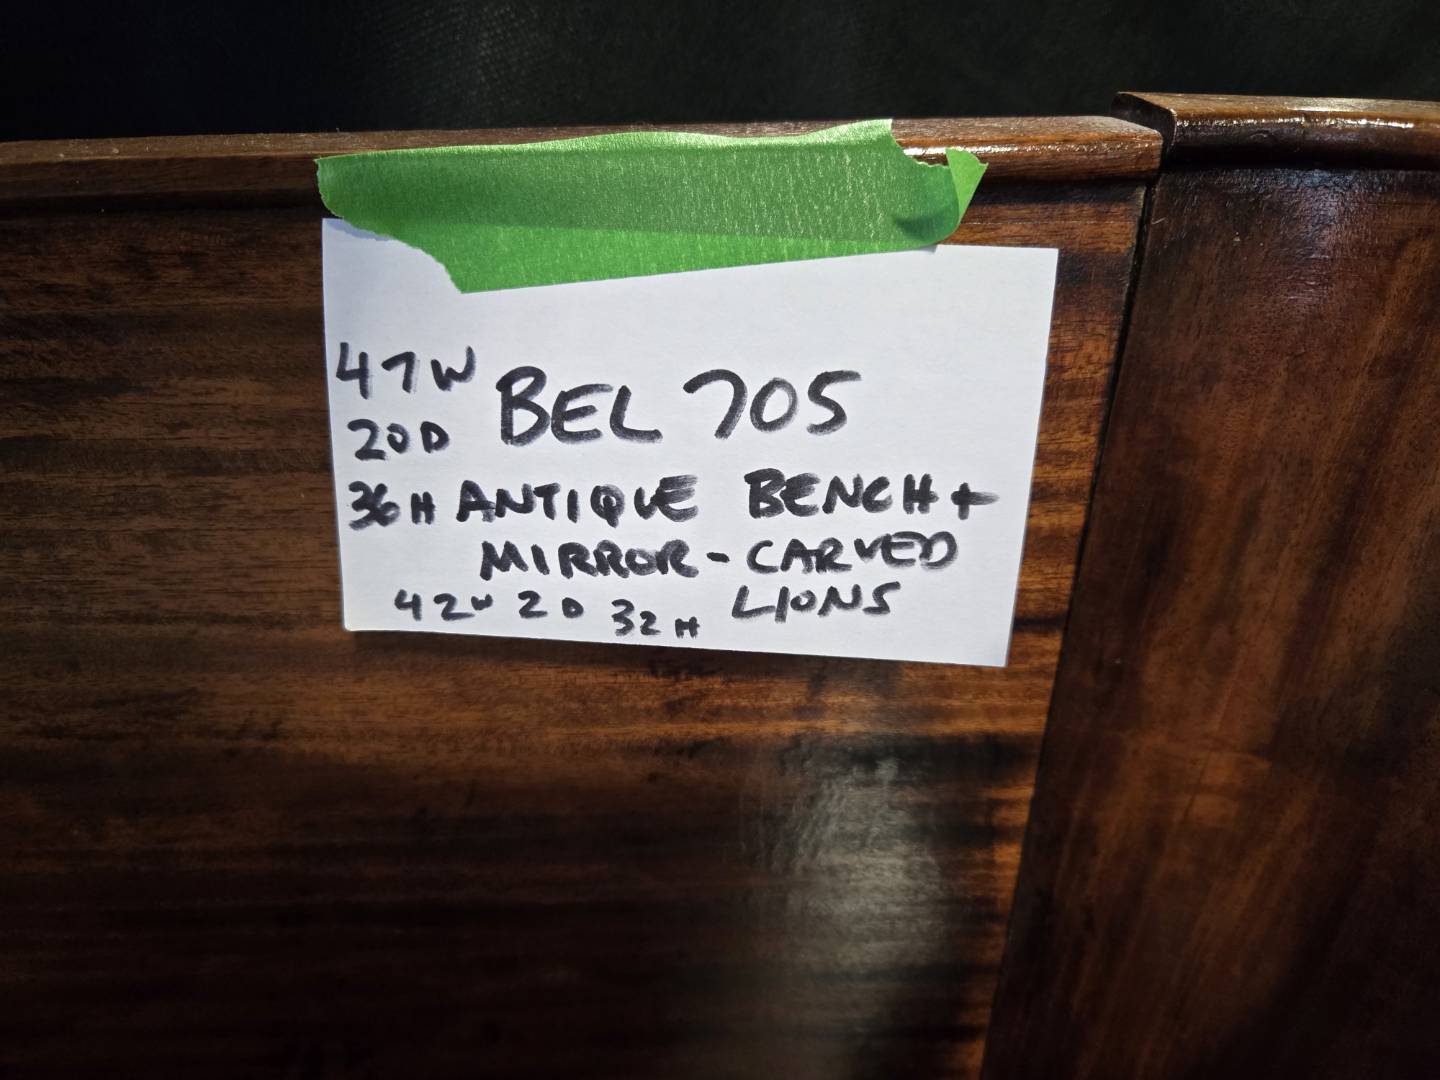 47W
20D BEL 705
36H ANTIQUE BENCH +
MIRROR - CARVED
42W 2D 32H LIONS